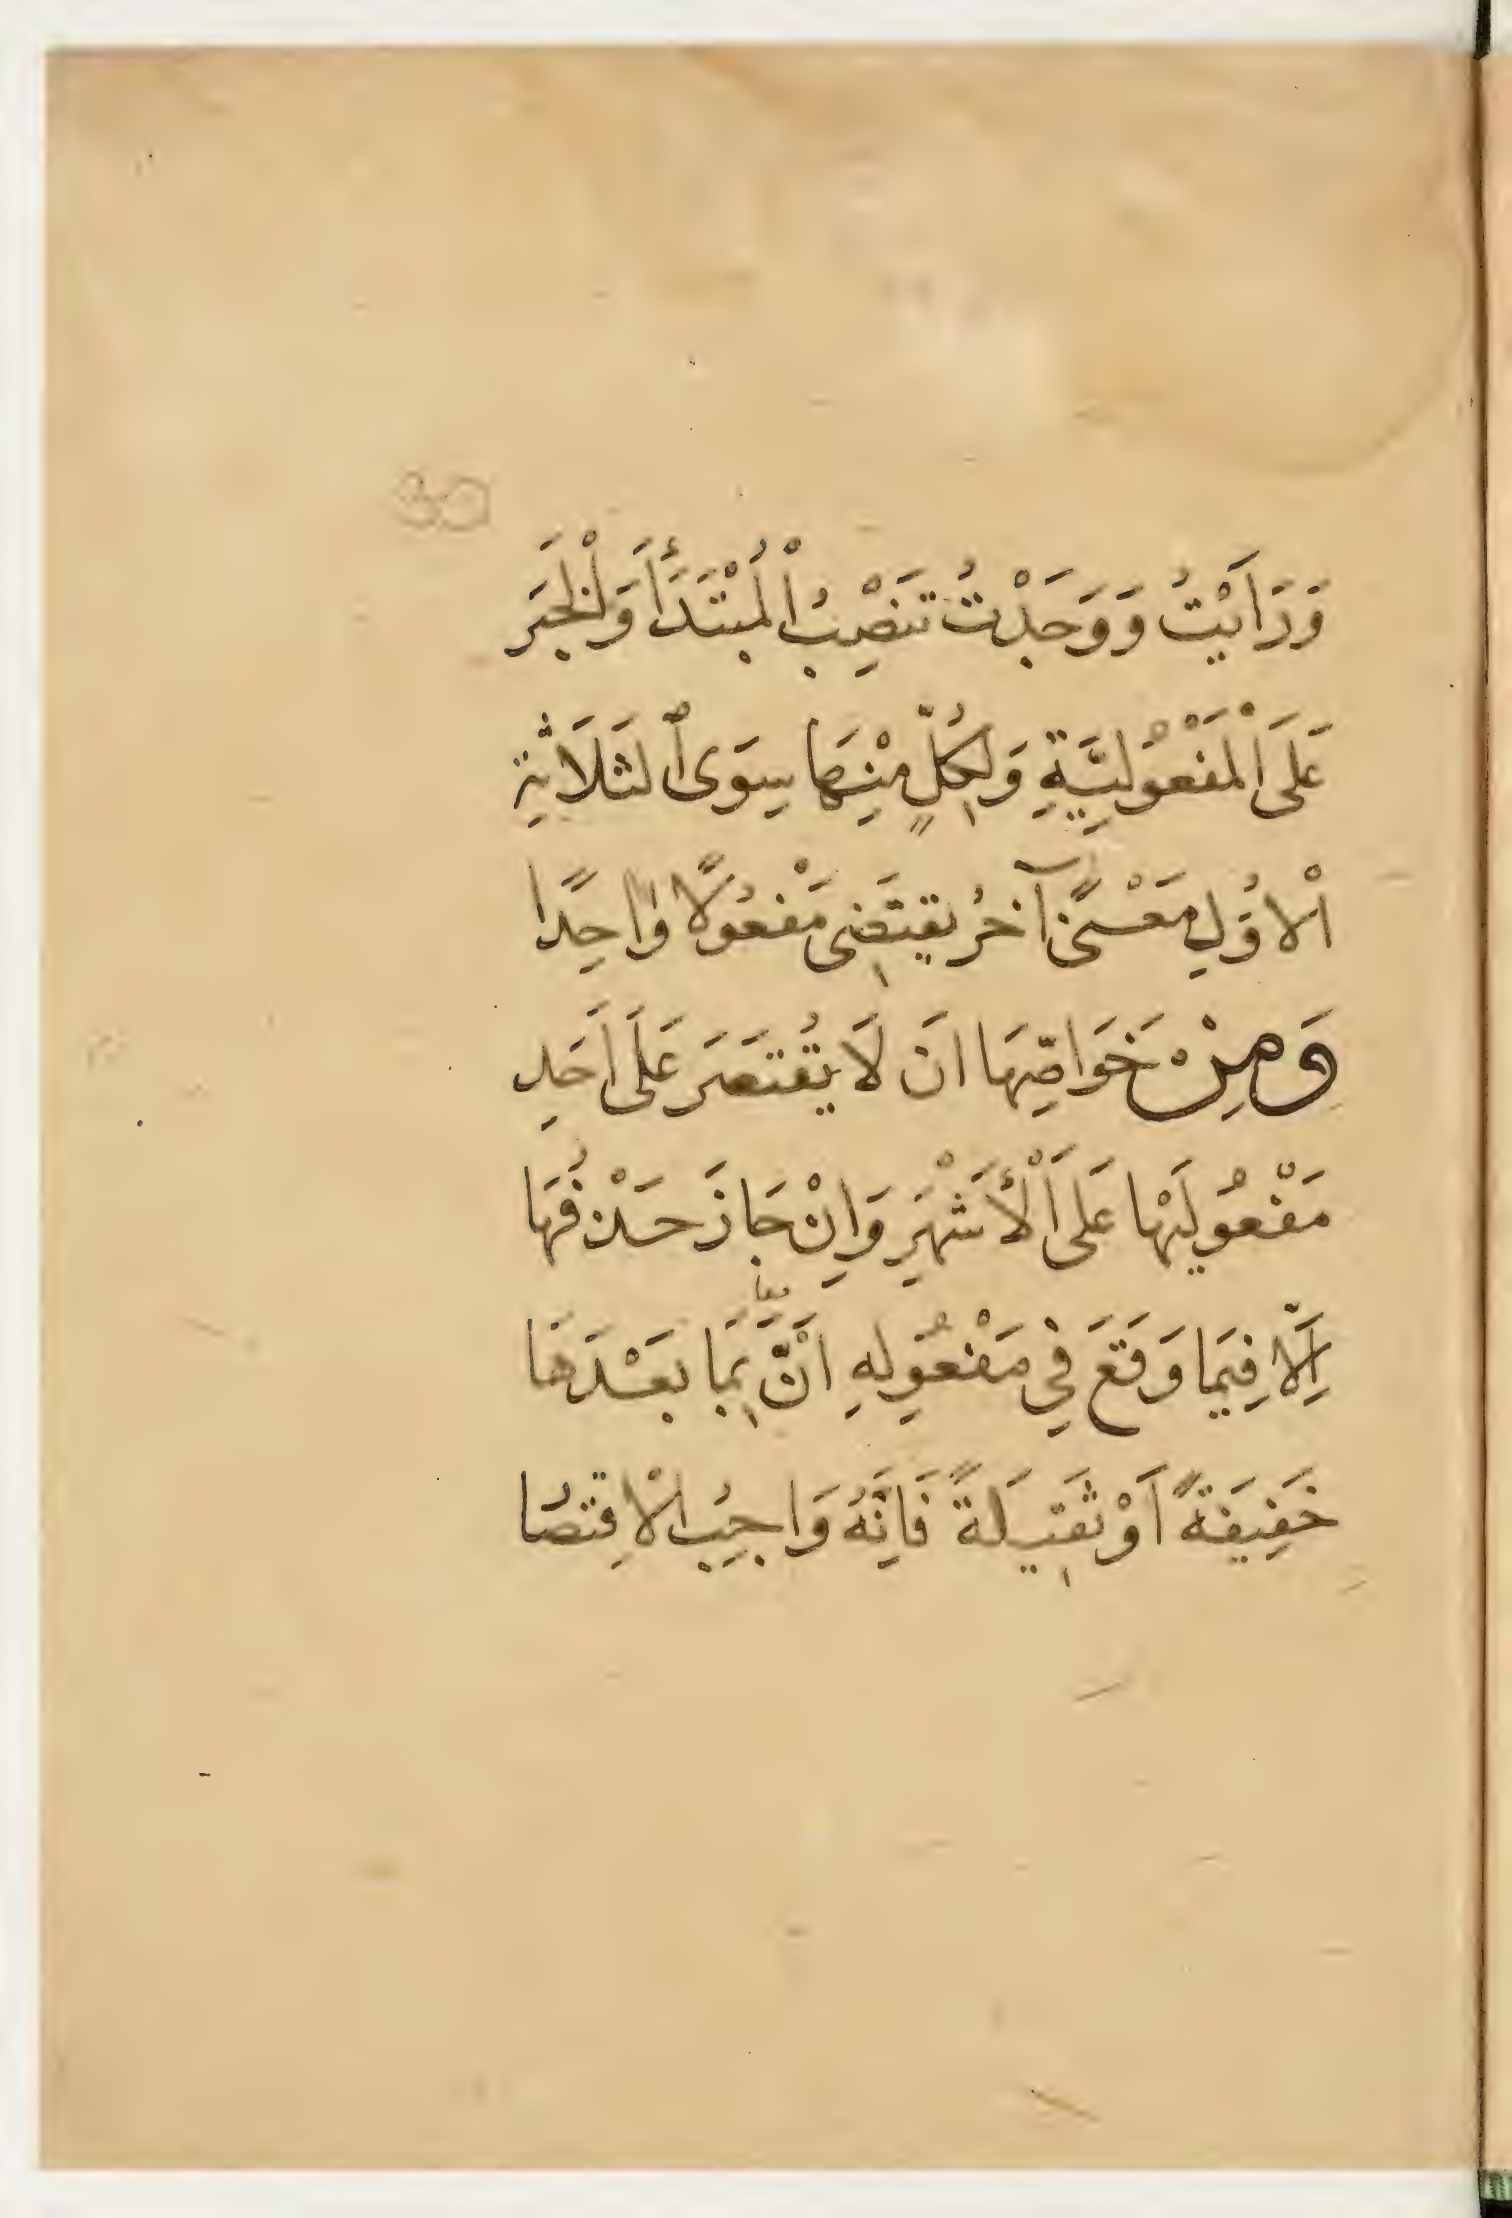 وَرَاَيْتُ وَوَجَدْتُ تَنْصِبُ الْمُبْتَدَأَ وَالْخَبَرَ
عَلَى الْمَفْعُوْلِيَّةِ وَلِكُلٍّ مِنْهَا سِوَى الثَلَاثَةِ
الْاُوَلِ مَعْنًى آخَرُ يقتَضِى مَفْعُولًا وَاحِدًا
وَمِنْ خَوَاصِّهَا انَ لَا يُقْتَصَرَ عَلَى اَحَدِ
مَفْعُوْلَيْهَا عَلَى الْأَشْهَرِ وَاِنْ جَازَ حَذْفُهَا
اِلَّا فِيمَا وَقَعَ فِي مَفْعُوْلِهِ اَنَّ بِمَا بَعْدَهَا
خَفِيفَةً اَوْ ثَقِيلَةً فَاِنَّهُ وَاجِبُ الْاِقتِصَا